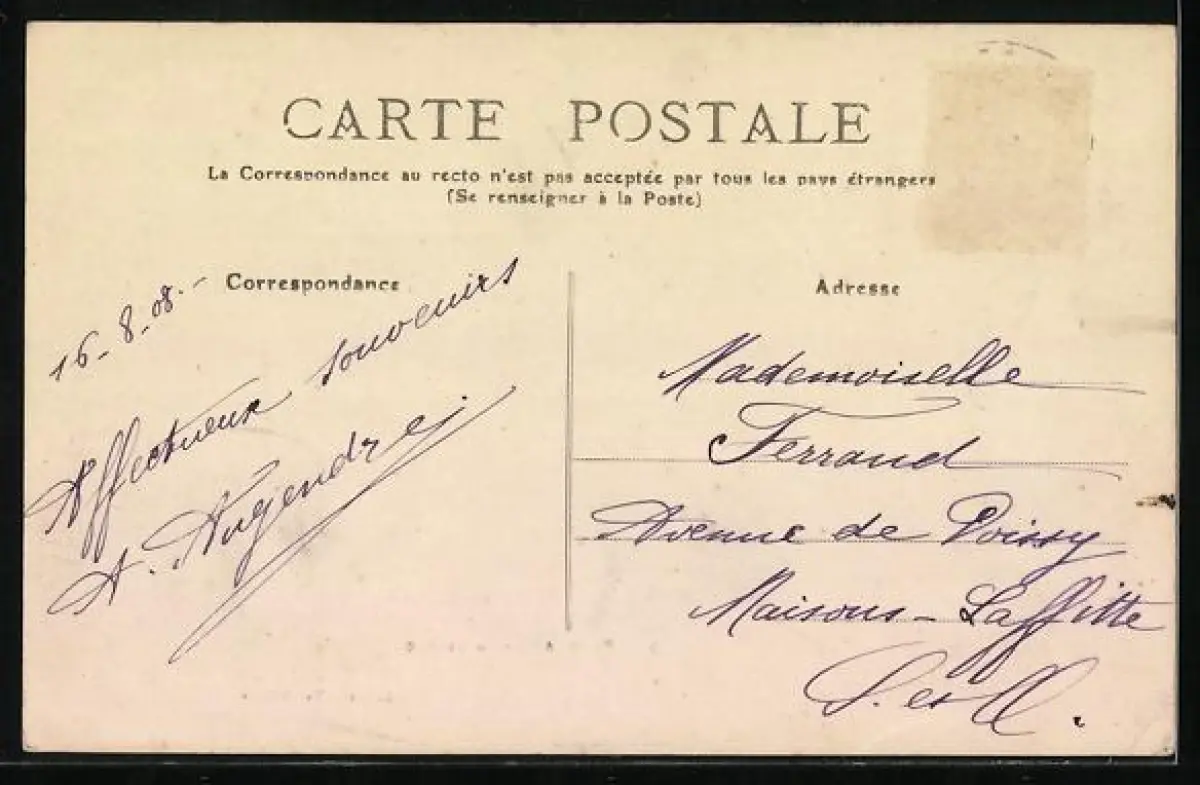 CARTE POSTALE
La Correspondance au recto n'est pas acceptée par tous les pays étrangers
(Se renseigner à la Poste)
Correspondance
16-8-08.-
Affectueux souvenirs
A. Augendre
Adresse
Mademoiselle
Ferrand
Avenue de Poissy
Maisons-Laffitte
S. et O.